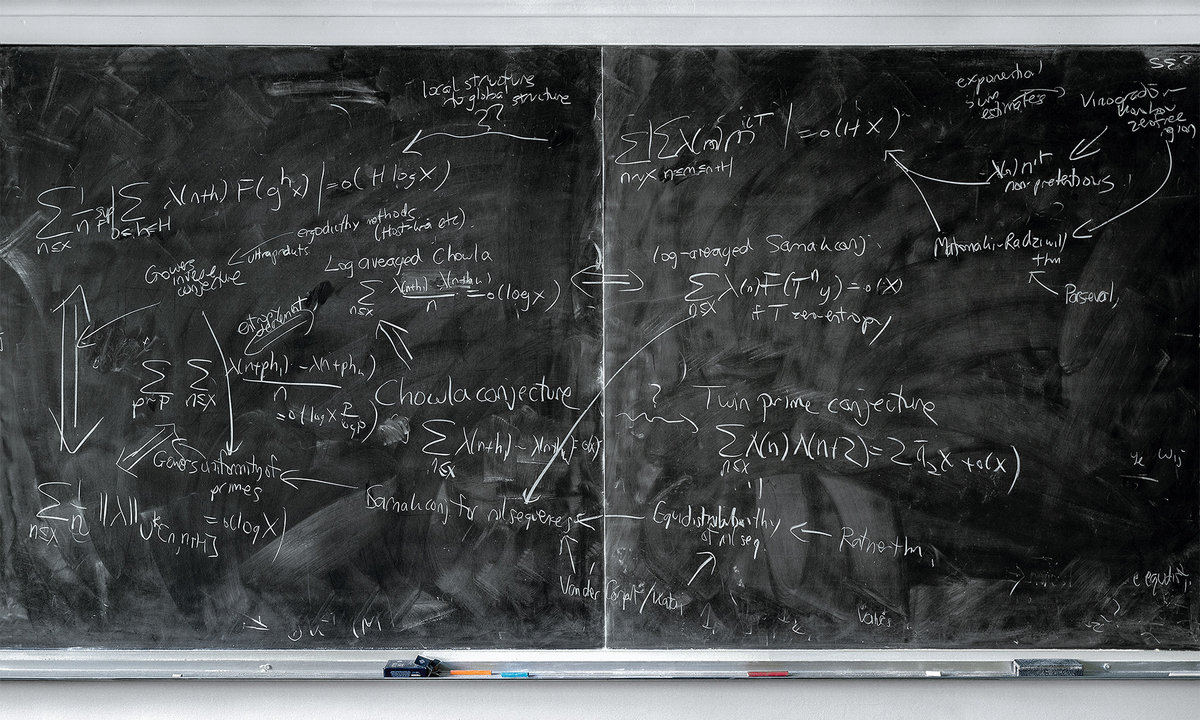 local structure
to global structure
??
∑ n≤X 1/n sup F |∑ 0≤h≤H λ(n+h) F(g^h x)| = o(H log X)
ergodic thy methods
(Host-Kra etc).
ultraproducts
Gowers
inverse
conjecture
Log averaged Chowla
∑ n≤X λ(n+h₁)--λ(n+hₖ)/n = o(log X)
entropy
decrement
∑ p~P ∑ n≤X λ(n+ph₁)--λ(n+phₖ)/n
= o(log X P/log P)
Chowla conjecture
∑ n≤X λ(n+h₁)--λ(n+hₖ) = o(X)
Gowers uniformity of
primes
Sarnak conj for nilsequences
∑ n≤X 1/n ||λ||U^k[n,n+H] = o(log X)
Van der Corput/Katai
exponential
sum
estimates
Vinogradov-
Korobov
zerofree
region
∑ n~X |∑ n≤m≤n+H λ(m) m^{it}| = o(HX)
λ(n) n^{it}
non-pretentious
Matomaki-Radziwill
thm
Parseval
log-averaged Sarnak conj.
∑ n≤X λ(n)F(T^n y) = o(X)
T zero entropy
?
Twin prime conjecture
∑ n≤X Λ(n)Λ(n+2) = 2Π₂X + o(X)
Equidistribution thy
of nilseq.
Ratner thm